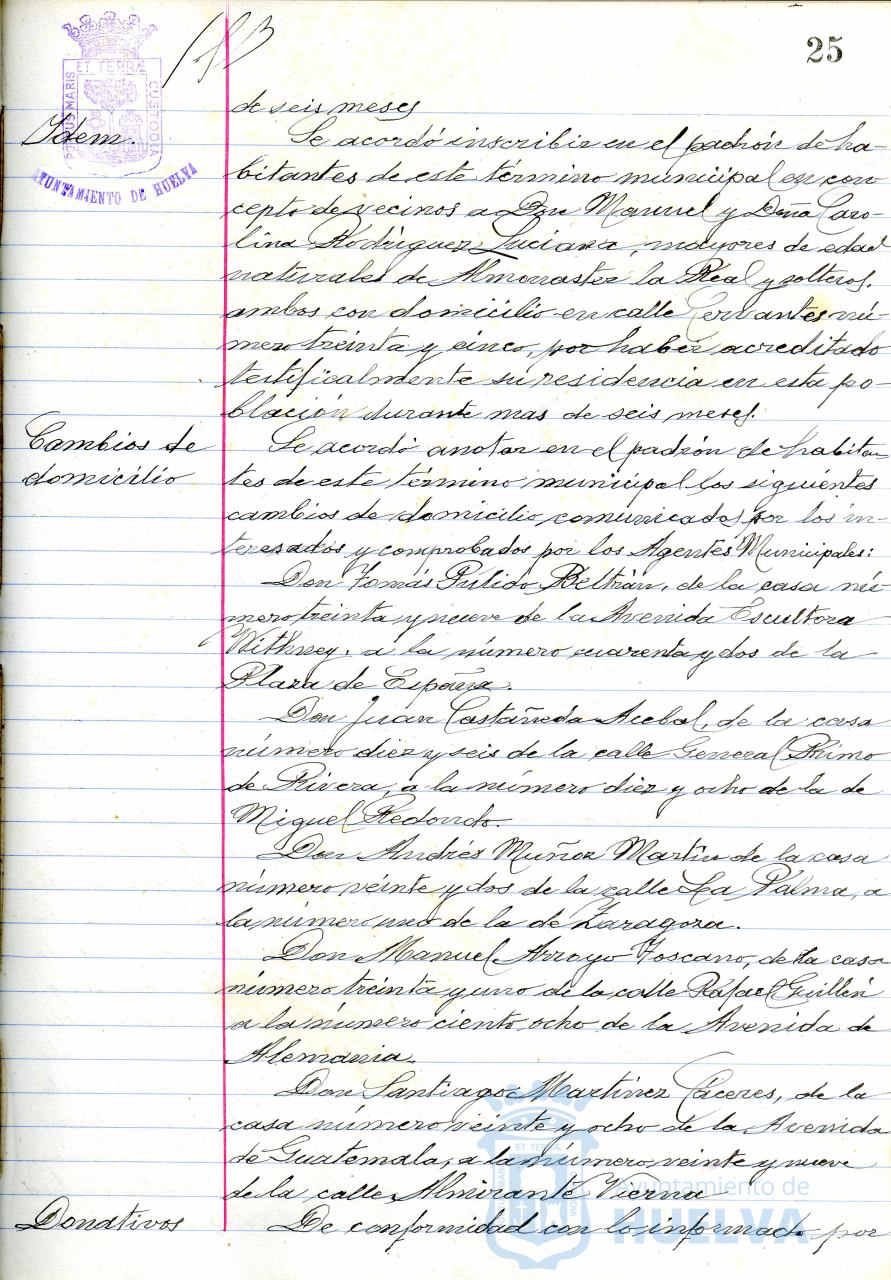 25
PORTUS MARIS ET TERRÆ CUSTODIA
AYUNTAMIENTO DE HUELVA
de seis meses
Idem.
Se acordó inscribir en el padrón de ha-
bitantes de este término municipal en con
cepto de vecinos a Don Manuel y Doña Caro-
lina Rodríguez Luciana, mayores de edad
naturales de Almonaster la Real y solteros.
ambos con domicilio en calle Cervantes nú-
mero treinta y cinco, por haber acreditado
testificalmente su residencia en esta po-
blación durante mas de seis meses.
Cambios de
domicilio
Se acordó anotar en el padrón de habitan
tes de este término municipal los siguientes
cambios de domicilio comunicados por los in-
teresados y comprobados por los Agentes Municipales:
Don Tomás Pulido Beltrán, de la casa nú-
mero treinta y nueve de la Avenida Escultora
Withney, a la número cuarenta y dos de la
Plaza de España.
Don Juan Castañeda Acebal, de la casa
número diez y seis de la calle General Primo
de Rivera, a la número diez y ocho de la de
Miguel Redondo.
Don Andrés Muñoz Martín de la casa
número veinte y dos de la calle La Palma, a
la número uno de la de Zaragoza.
Don Manuel Arroyo Toscano, de la casa
número treinta y uno de la calle Rafael Guillén
a la número ciento ocho de la Avenida de
Alemania.
Don Santiago Martínez Cáceres, de la
casa número veinte y ocho de la Avenida
de Guatemala, a la número veinte y nueve
de la calle Almirante Vierna
Donativos
De conformidad con lo informado por
Ayuntamiento de
HUELVA